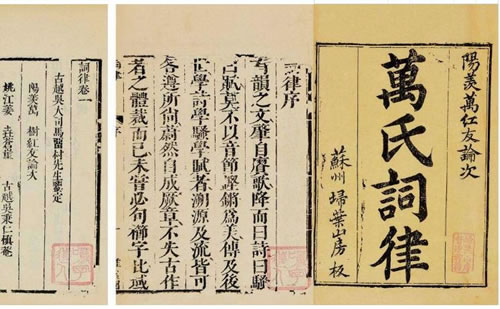 陽羨萬紅友論次
萬氏詞律
蘇州埽葉山房板
律序
韻之文肇自賡歌降而曰詩曰騷
曰賦莫不以音節鏗鏘爲美傳及後
世學詩學騷學賦者溯源及流皆可
各遵所尚蔚然自成厥章不失古作
者之體裁而已未嘗必句櫛字比
序
詞律卷一
古越吳大司馬留村先生鑒定
陽羨萬 樹紅友論次
姚江姜 垚蒼崖 古越吳秉仁慎菴